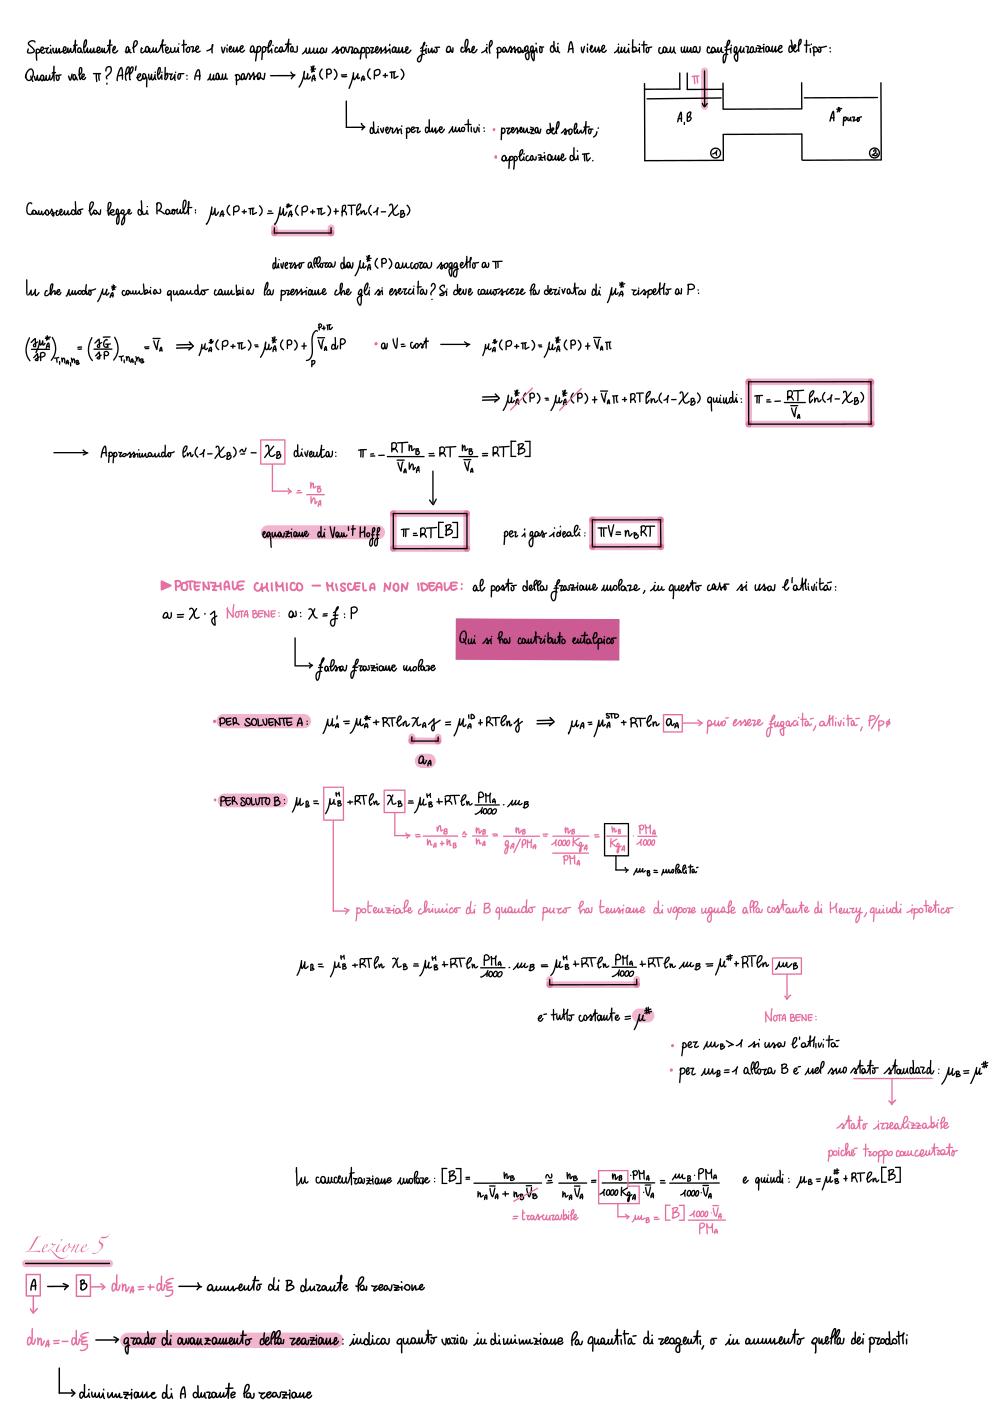 Sperimentalmente al contenitore 1 viene applicata una sovrappressione fino a che il passaggio di A viene inibito con una configurazione del tipo:
Quanto vale π? All'equilibrio: A non passa → μ*A(P) = μA(P+π)
π
A,B
A* puro
1
2
diversi per due motivi: • presenza del soluto;
• applicazione di π.
Conoscendo la legge di Raoult: μA(P+π) = μ*A(P+π) + RTln(1-χB)
diverso allora da μ*A(P) ancora soggetto a π
In che modo μ*A cambia quando cambia la pressione che gli si esercita? Si deve conoscere la derivata di μ*A rispetto a P:
(∂μ*A/∂P)T,nA,nB = (∂G̅/∂P)T,nA,nB = V̅A ⇒ μ*A(P+π) = μ*A(P) + ∫P^P+π V̅A dP • a V=cost → μ*A(P+π) = μ*A(P) + V̅Aπ
⇒ μ*A(P) = μ*A(P) + V̅Aπ + RTln(1-χB) quindi: π = - RT/V̅A ln(1-χB)
→ Approssimando ln(1-χB) ≃ - χB diventa: π = - RTnB/V̅AnA = RT nB/V̅A = RT[B]
= nB/nA
equazione di Van't Hoff π = RT[B] per i gas ideali: πV = nBRT
▶POTENZIALE CHIMICO – MISCELA NON IDEALE: al posto della frazione molare, in questo caso si usa l'attività:
a = χ · γ NOTA BENE: a : χ = f : P
Qui si ha contributo entalpico
falsa frazione molare
• PER SOLVENTE A: μ'A = μ*A + RTlnχAγ = μA^ID + RTlnγ ⇒ μA = μA^STD + RTln aA → può essere fugacità, attività, P/pø
aA
• PER SOLUTO B: μB = μB^H + RTln χB = μB^H + RTln PMA/1000 · mB
= nB/nA+nB ≃ nB/nA = nB/gA/PMA = nB/1000KgA/PMA = nB/KgA · PMA/1000
mB = molalità
potenziale chimico di B quando puro ha tensione di vapore uguale alla costante di Henry, quindi ipotetico
μB = μB^H + RTln χB = μB^H + RTln PMA/1000 · mB = μB^H + RTln PMA/1000 + RTln mB = μ# + RTln mB
è tutto costante = μ# NOTA BENE:
• per mB>1 si usa l'attività
• per mB=1 allora B è nel suo stato standard: μB = μ#
stato irrealizzabile
poiché troppo concentrato
In concentrazione molare: [B] = nB/nAV̅A + nBV̅B ≃ nB/nAV̅A = nB·PMA/1000KgA·V̅A = mB·PMA/1000·V̅A e quindi: μB = μB# + RTln[B]
= trascurabile
mB = [B] 1000·V̅A/PMA
Lezione 5
A → B → dnA = +dξ → aumento di B durante la reazione
dnA = -dξ → grado di avanzamento della reazione: indica quanto varia in diminuzione la quantità di reagenti, o in aumento quella dei prodotti
diminuzione di A durante la reazione